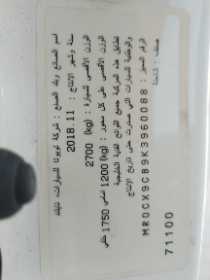 اسم الصانع وبلد الصنع : شركة تويوتا للسيارات، تايلند
سنة وشهر الإنتاج : 2018.11
الوزن الأقصى للسيارة : 2700 (kg)
الوزن الأقصى على كل محور : 1200 (kg) أمامي 1750 خلفي
تطابق هذه المركبة جميع اللوائح الفنية الخليجية
والوطنية للسيارات التي صدرت حتى تاريخ الإنتاج
الرقم المميز : MR0CX9CB9K3960088
71100